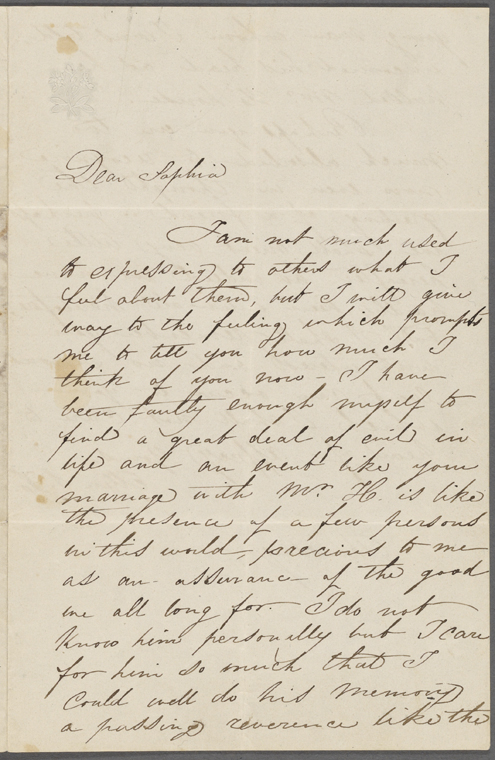 Dear Sophia
I am not much used
to expressing to others what I
feel about them, but I will give
way to the feeling which prompts
me to tell you how much I
think of you now – I have
been faulty enough myself to
find a great deal of evil in
life and an event like your
marriage with Mr. H. is like
the presence of a few persons
in this world, precious to me
as an assurance of the good
we all long for. I do not
know him personally but I care
for him so much that I
could well do his memory
a passing reverence like the